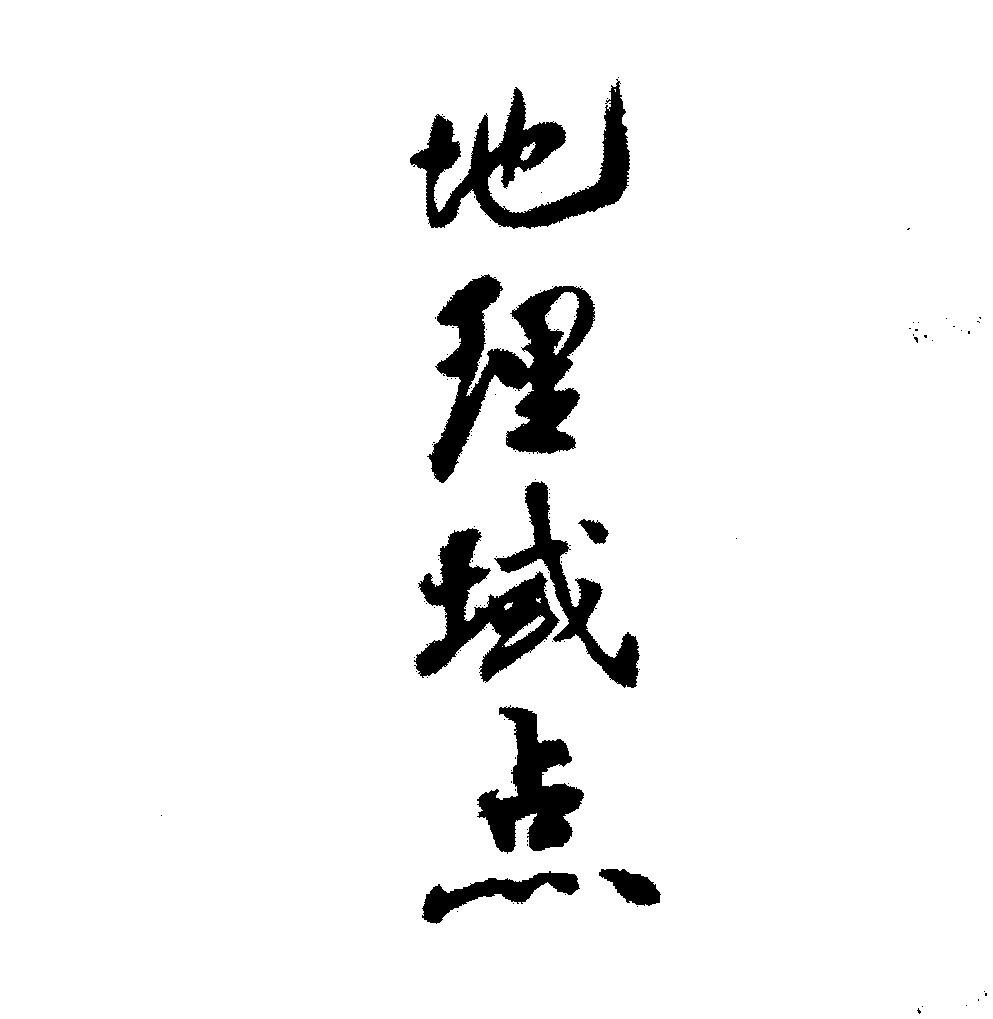 地理域点